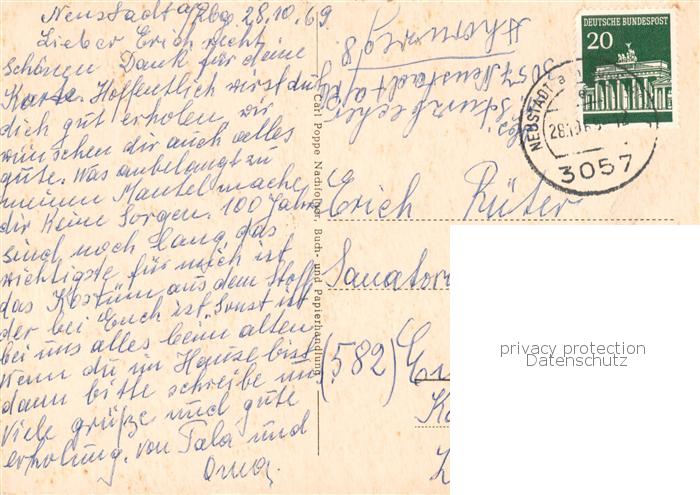 Neustadt a/Rbg, 28.10.69
Lieber Erich recht
schönen Dank für deine
Karte. Hoffentlich wirst du
dich gut erholen wir
wünschen dir auch alles
gute. Was anbelangt zu
meinen Mantel mache
dir keine Sorgen. 100 Jahre
sind noch lang, das
wichtigste für mich ist
das Kostüm aus dem Stoff
der bei Euch ist, Sonst ist
bei uns alles beim alten
Wenn du im Hause bist
dann bitte schreibe uns
Viele grüße und gute
erholung. von Tala und
Oma.
Carl Poppe Nachfolger, Buch- und Papierhandlung
3057 Neustadt a/Rbg
8
DEUTSCHE BUNDESPOST
20
NEUSTADT a
3057
Erich Rüter
Sanator
(582)
privacy protection
Datenschutz